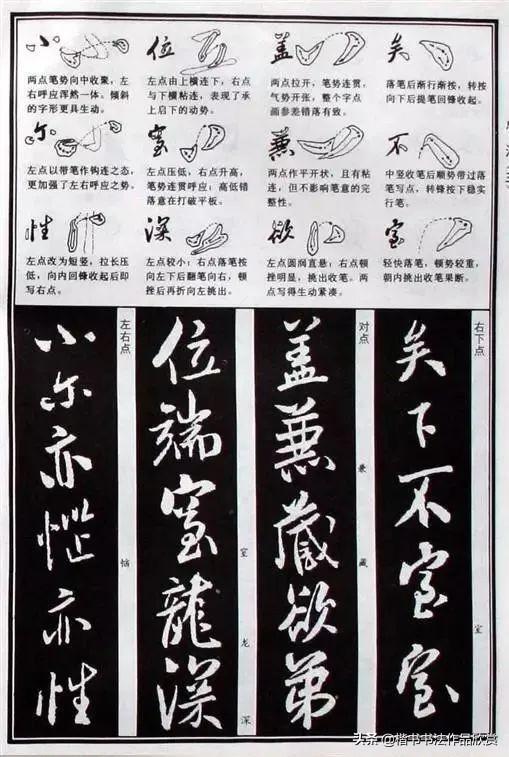 小
两点笔势向中收聚,左
右呼应浑然一体。倾斜
的字形更具生动。
位
左点由上横连下,右点
与下横粘连,表现了承
上启下的动势。
盖
两点拉开,笔势连贯,
气势开张,整个字点
画参差错落有致。
矣
落笔后渐行渐按,转按
向下后提笔回锋收起。
尔
左点以带笔作钩连之态,
更加强了左右呼应之势。
室
左点压低,右点升高,
笔势连贯呼应;高低错
落意在打破平板。
兼
两点作平开状,且有粘
连,但不影响笔意的完
整性。
不
中竖收笔后顺势带过落
笔写点,转锋按下稳实
行笔。
性
左点改为短竖,拉长压
低,向内回锋收起后即
写右点。
深
左点较小;右点落笔按
向左下后翻笔向右,顿
挫后再折向左挑出。
欲
左点圆润直悬;右点顿
挫明显,挑出收笔。两
点写得生动紧凑。
室
轻快落笔,顿势较重,
朝内挑出收笔果断。
左右点
小尔亦恼亦性
恼
位端室龍深
室
龙
深
对点
盖兼藏欲弟
兼
藏
右下点
矣下不室室
室
头条@楷书书法作品欣赏